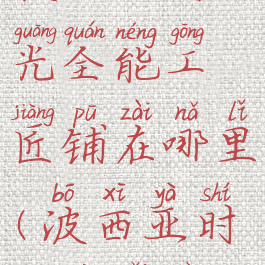 guāng quán néng gōng
光全能工
jiàng pū zài nǎ lǐ
匠铺在哪里
bō xī yà shí
(波西亚时